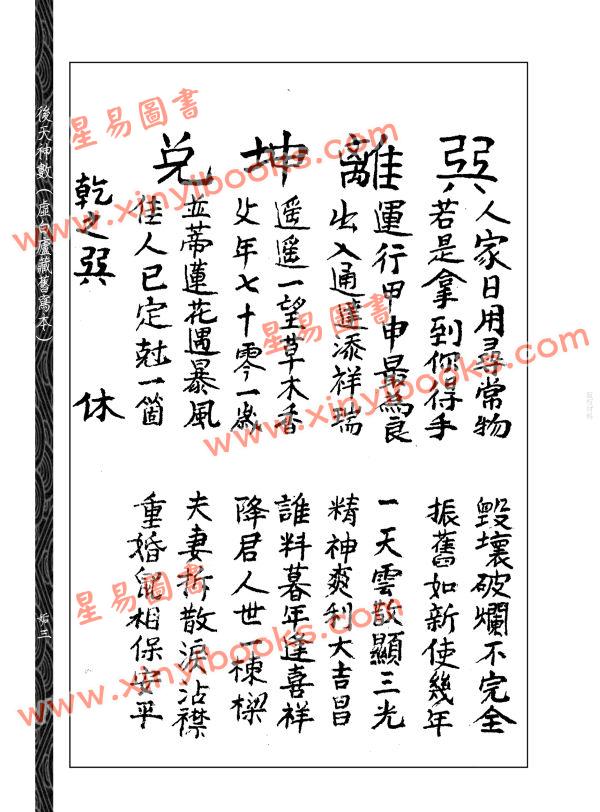 巽 人家日用尋常物 毀壞破爛不完全
若是拿到你得手 振舊如新使幾年
離 運行甲申最為良 一天雲散顯三光
出入通達添祥瑞 精神爽利大吉昌
坤 遥遥一望草木香 誰料暮年逢喜祥
父年七十零一歲 降君人世一棟樑
兌 並蒂蓮花遇暴風 夫妻拆散淚沾襟
佳人已定尅一箇 重婚鼠相保安平
乾之巽 休
後天神數(虛白廬藏舊寫本)
姤三
星易圖書
www.xinyibooks.com
星易圖書
www.xinyibooks.com
星易圖書
www.xinyibooks.com